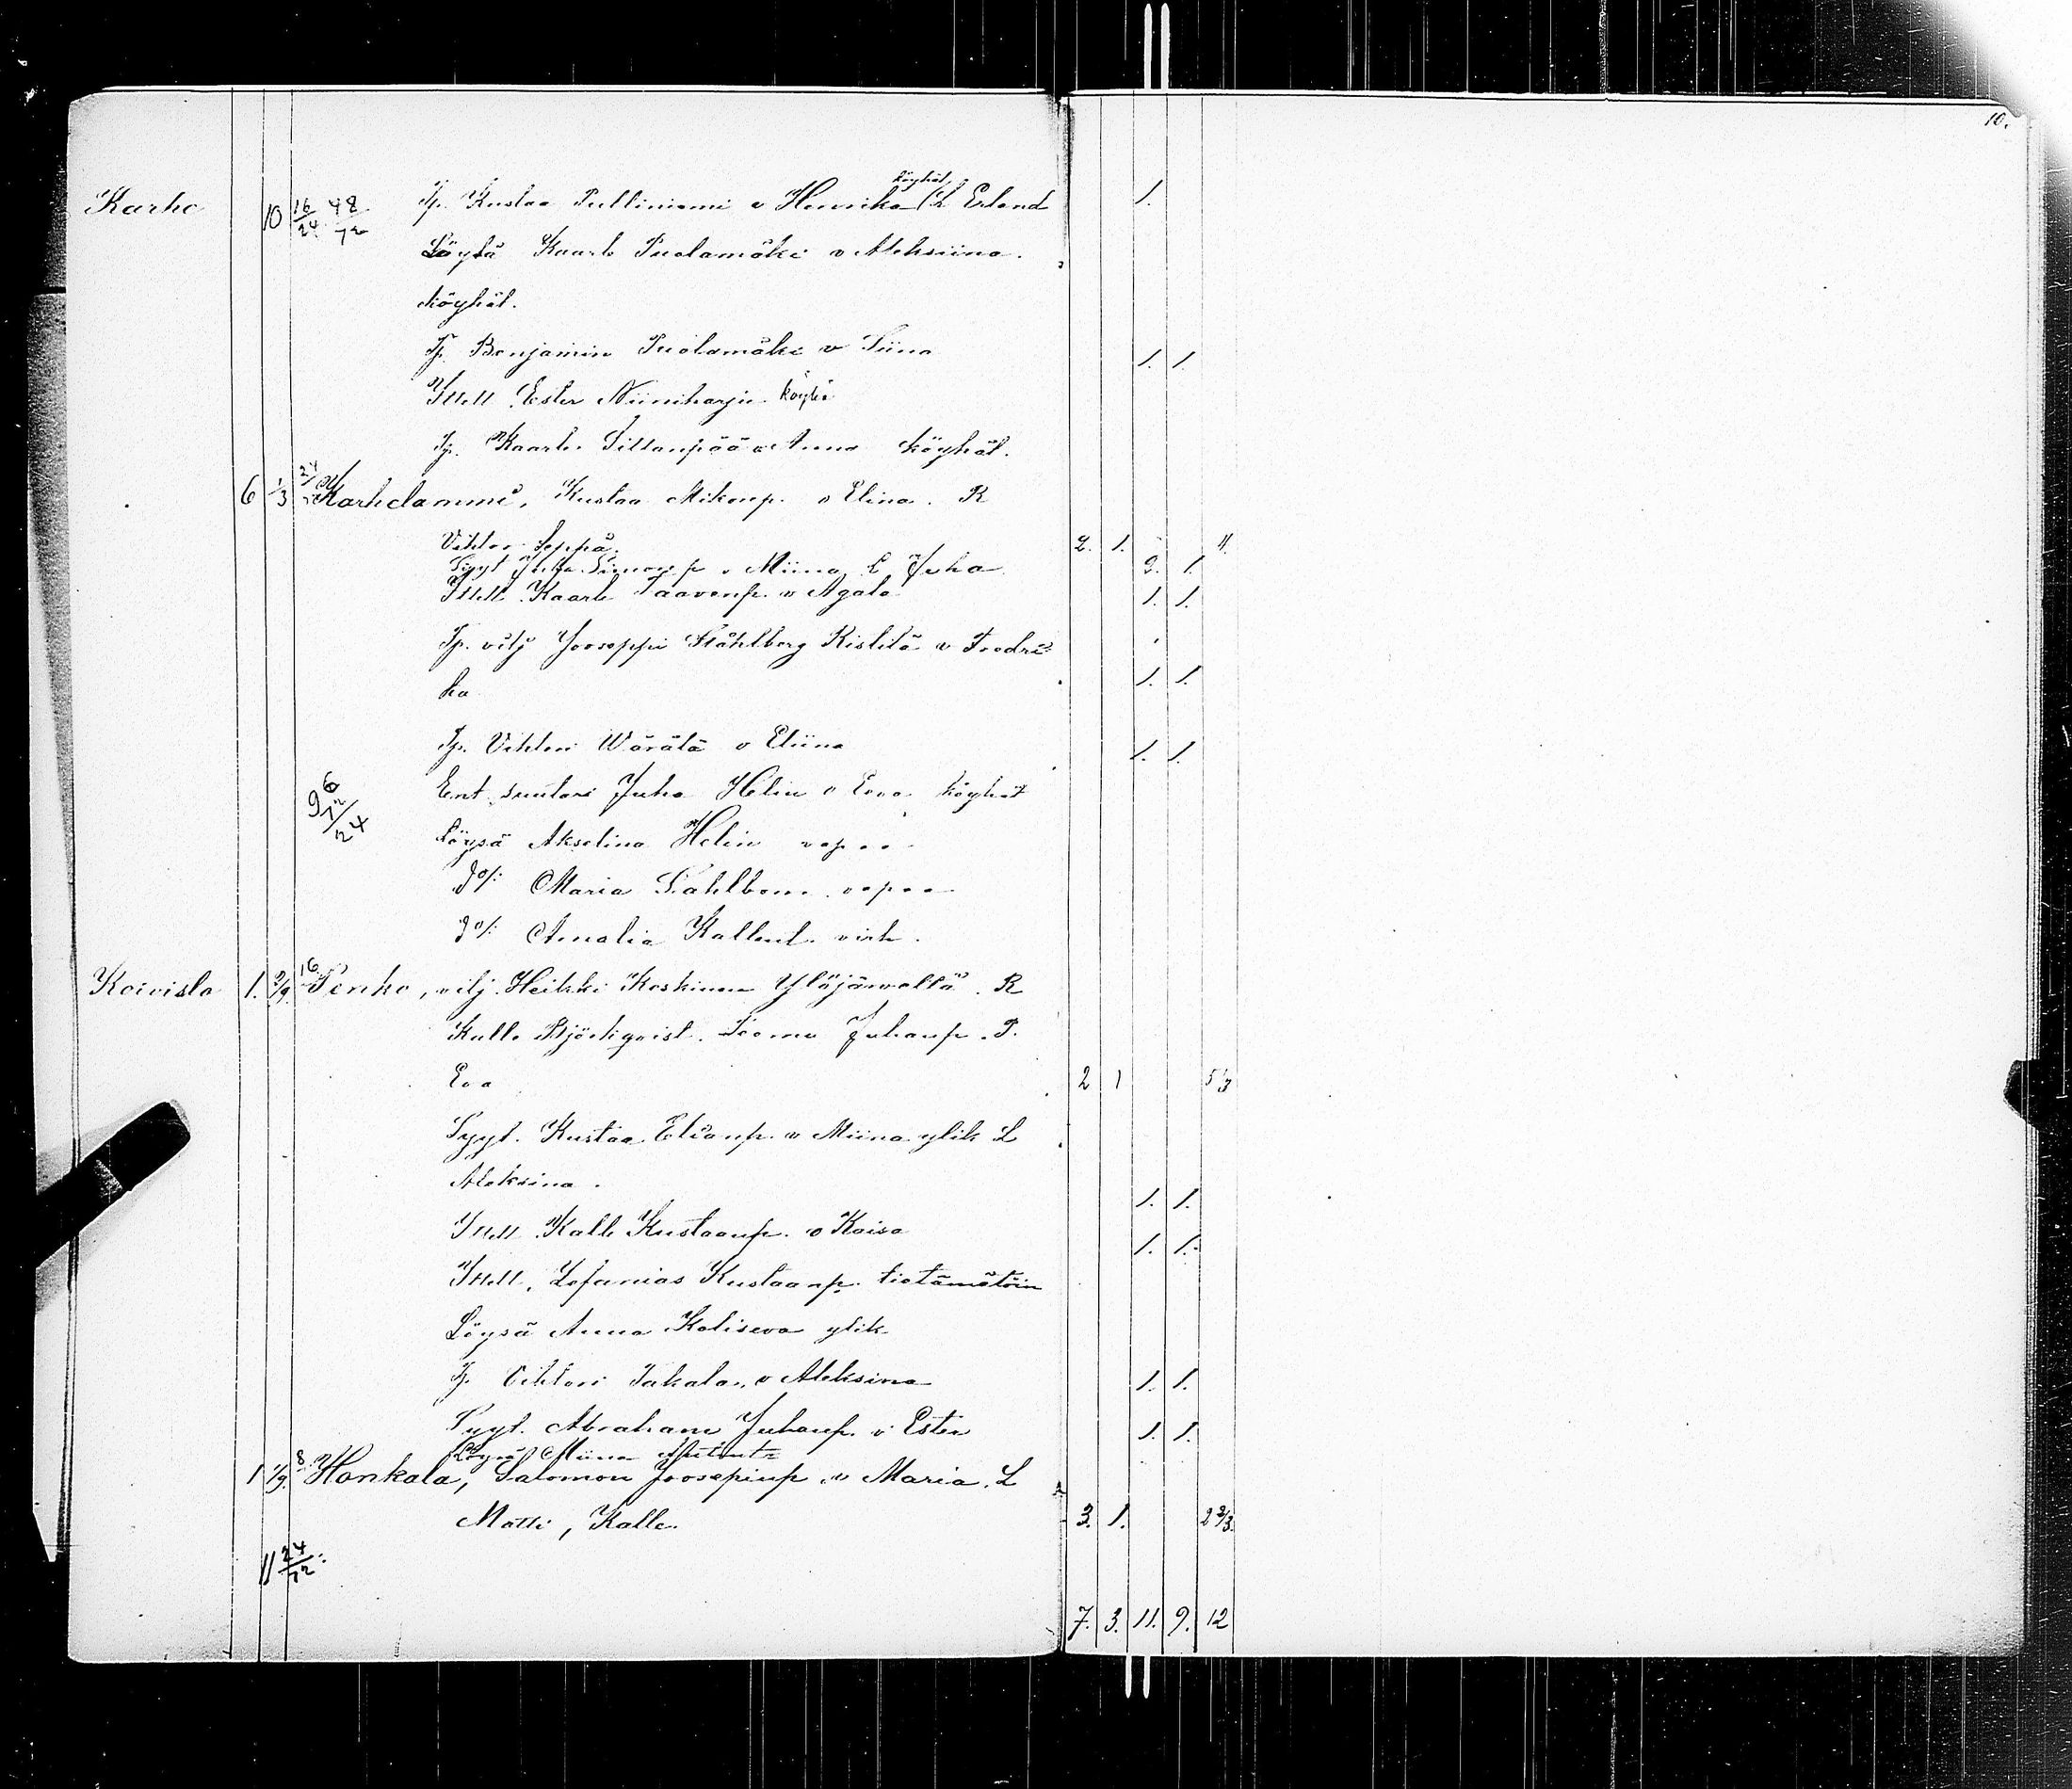 10.
Karhe 10 16/24 48/72 Tp. Kustaa Pulliniemi v Henrika (L Erland 1.
köyhät
Löysä Kaarle Puolamäki v Aleksiina.
köyhät.
Tp. Benjamin Puolamäki v Siina 1. 1.
Itell. Ester Niiniharju köyhä
Tp. Kaarle Sillanpää v Anna köyhät.
6 1/3 24/72 Karhelammi, Kustaa Mikonp. v Elina. R
Vihtor Seppä. 2. 1. 4.
Syyt Juha Simonp v Miina L Juha 2. 1.
Itell. Kaarle Taavenp. v Agata 1. 1.
Tp. vilj Jooseppi Ståhlberg Ristilä v Fredri-
ka 1. 1.
Tp. Vihtori Wärälä v Eliina 1. 1.
Ent. suutari Juha Helin v Eeva köyhät
Löysä Akselina Helin vapaa
Do/: Maria Stahlbom. vapaa
Do/: Amalia Kallent. virh.
Koivisto 1. 7/9. 16 Penho, vilj. Heikki Koskinen Ylöjärvellä. R
Kalle Björkqvist. Tuomo Juhanp. P.
Eva 2 1 5 1/3
Syyt. Kustaa Elianp. v Miina ylik L
Aleksina. 1. 1.
Itell. Kalle Kustaanp. v Kaisa 1. 1.
Itell. Zefanias Kustaanp. tietämätöin
Löysä Anna Koliseva ylik
Tp. Vihtori Takala, v Aleksina 1. 1.
Syyt. Abraham Juhanp. v Ester 1. 1.
Löysä Miina
1 1/9. 8 Honkala, Salomon Joosepinp. v Maria. L
Matti, Kalle. 3. 1. 2 2/3.
11 24/72
7. 3. 11. 9. 12